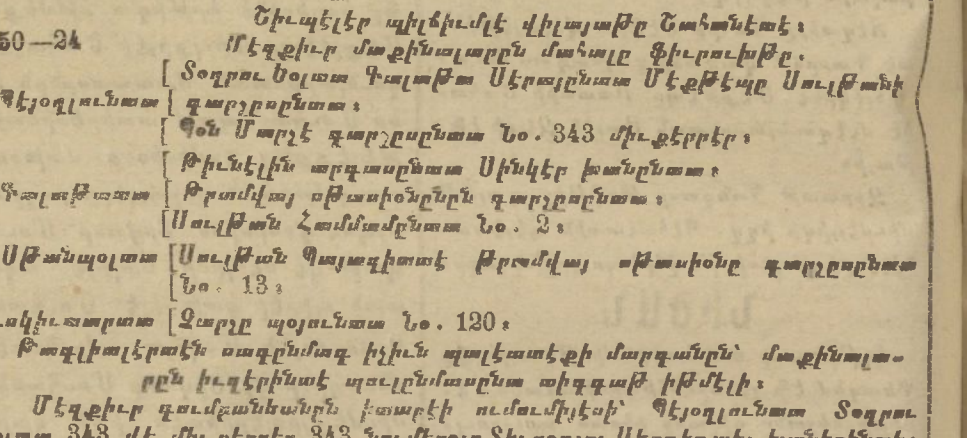 Շիւպէլէր պիլճիւմլէ վիլայաթը Շահանէտէ։
50—24 Մէզքիւր մաքինալարըն մահալը ֆիւրուխթը.
[ Տօղրու Եօլտա Գալաթա Սէրայընտա Մէքթէպը Սուլթանի
Պէյօղլունտա [ գարշըսընտա։
[ Պօն Մարշէ գարշըսընտա Նօ. 343 միւքէրրէր։
[ Թիւնէլին արգասընտա Սինկէր խանընտա։
Գալաթատա [ Թրամվայ սթասիօնընըն գարշըսընտա։
[Սուլթան Համմամընտա Նօ. 2։
Սթանպօլտա [Սուլթան Պայազիտտէ Թրամվայ սթասիօնը գարշըսընտա
[Նօ. 13։
[Չարշը պօյունտա Նօ. 120։
Թագլիտլէրտէն սագընմագ իչիւն պալէտտէքի մարգանըն՝ մաքինալա-
րըն իւզէրինտէ պուլընմասընտա տիգգաթ իթմէլի։
Մէզքիւր գումբանեանըն իտարէի ումումիյէսի՝ Պէյօղլունտա Տօղրու
343 վէ 343